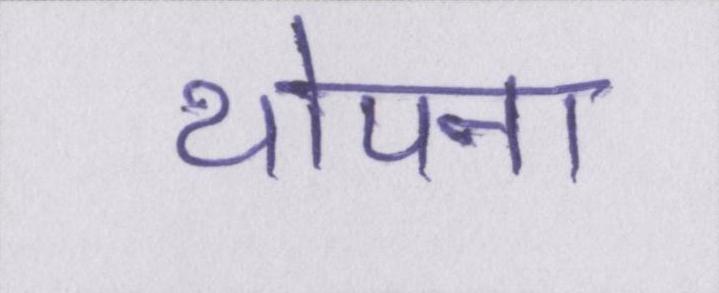 थोपना